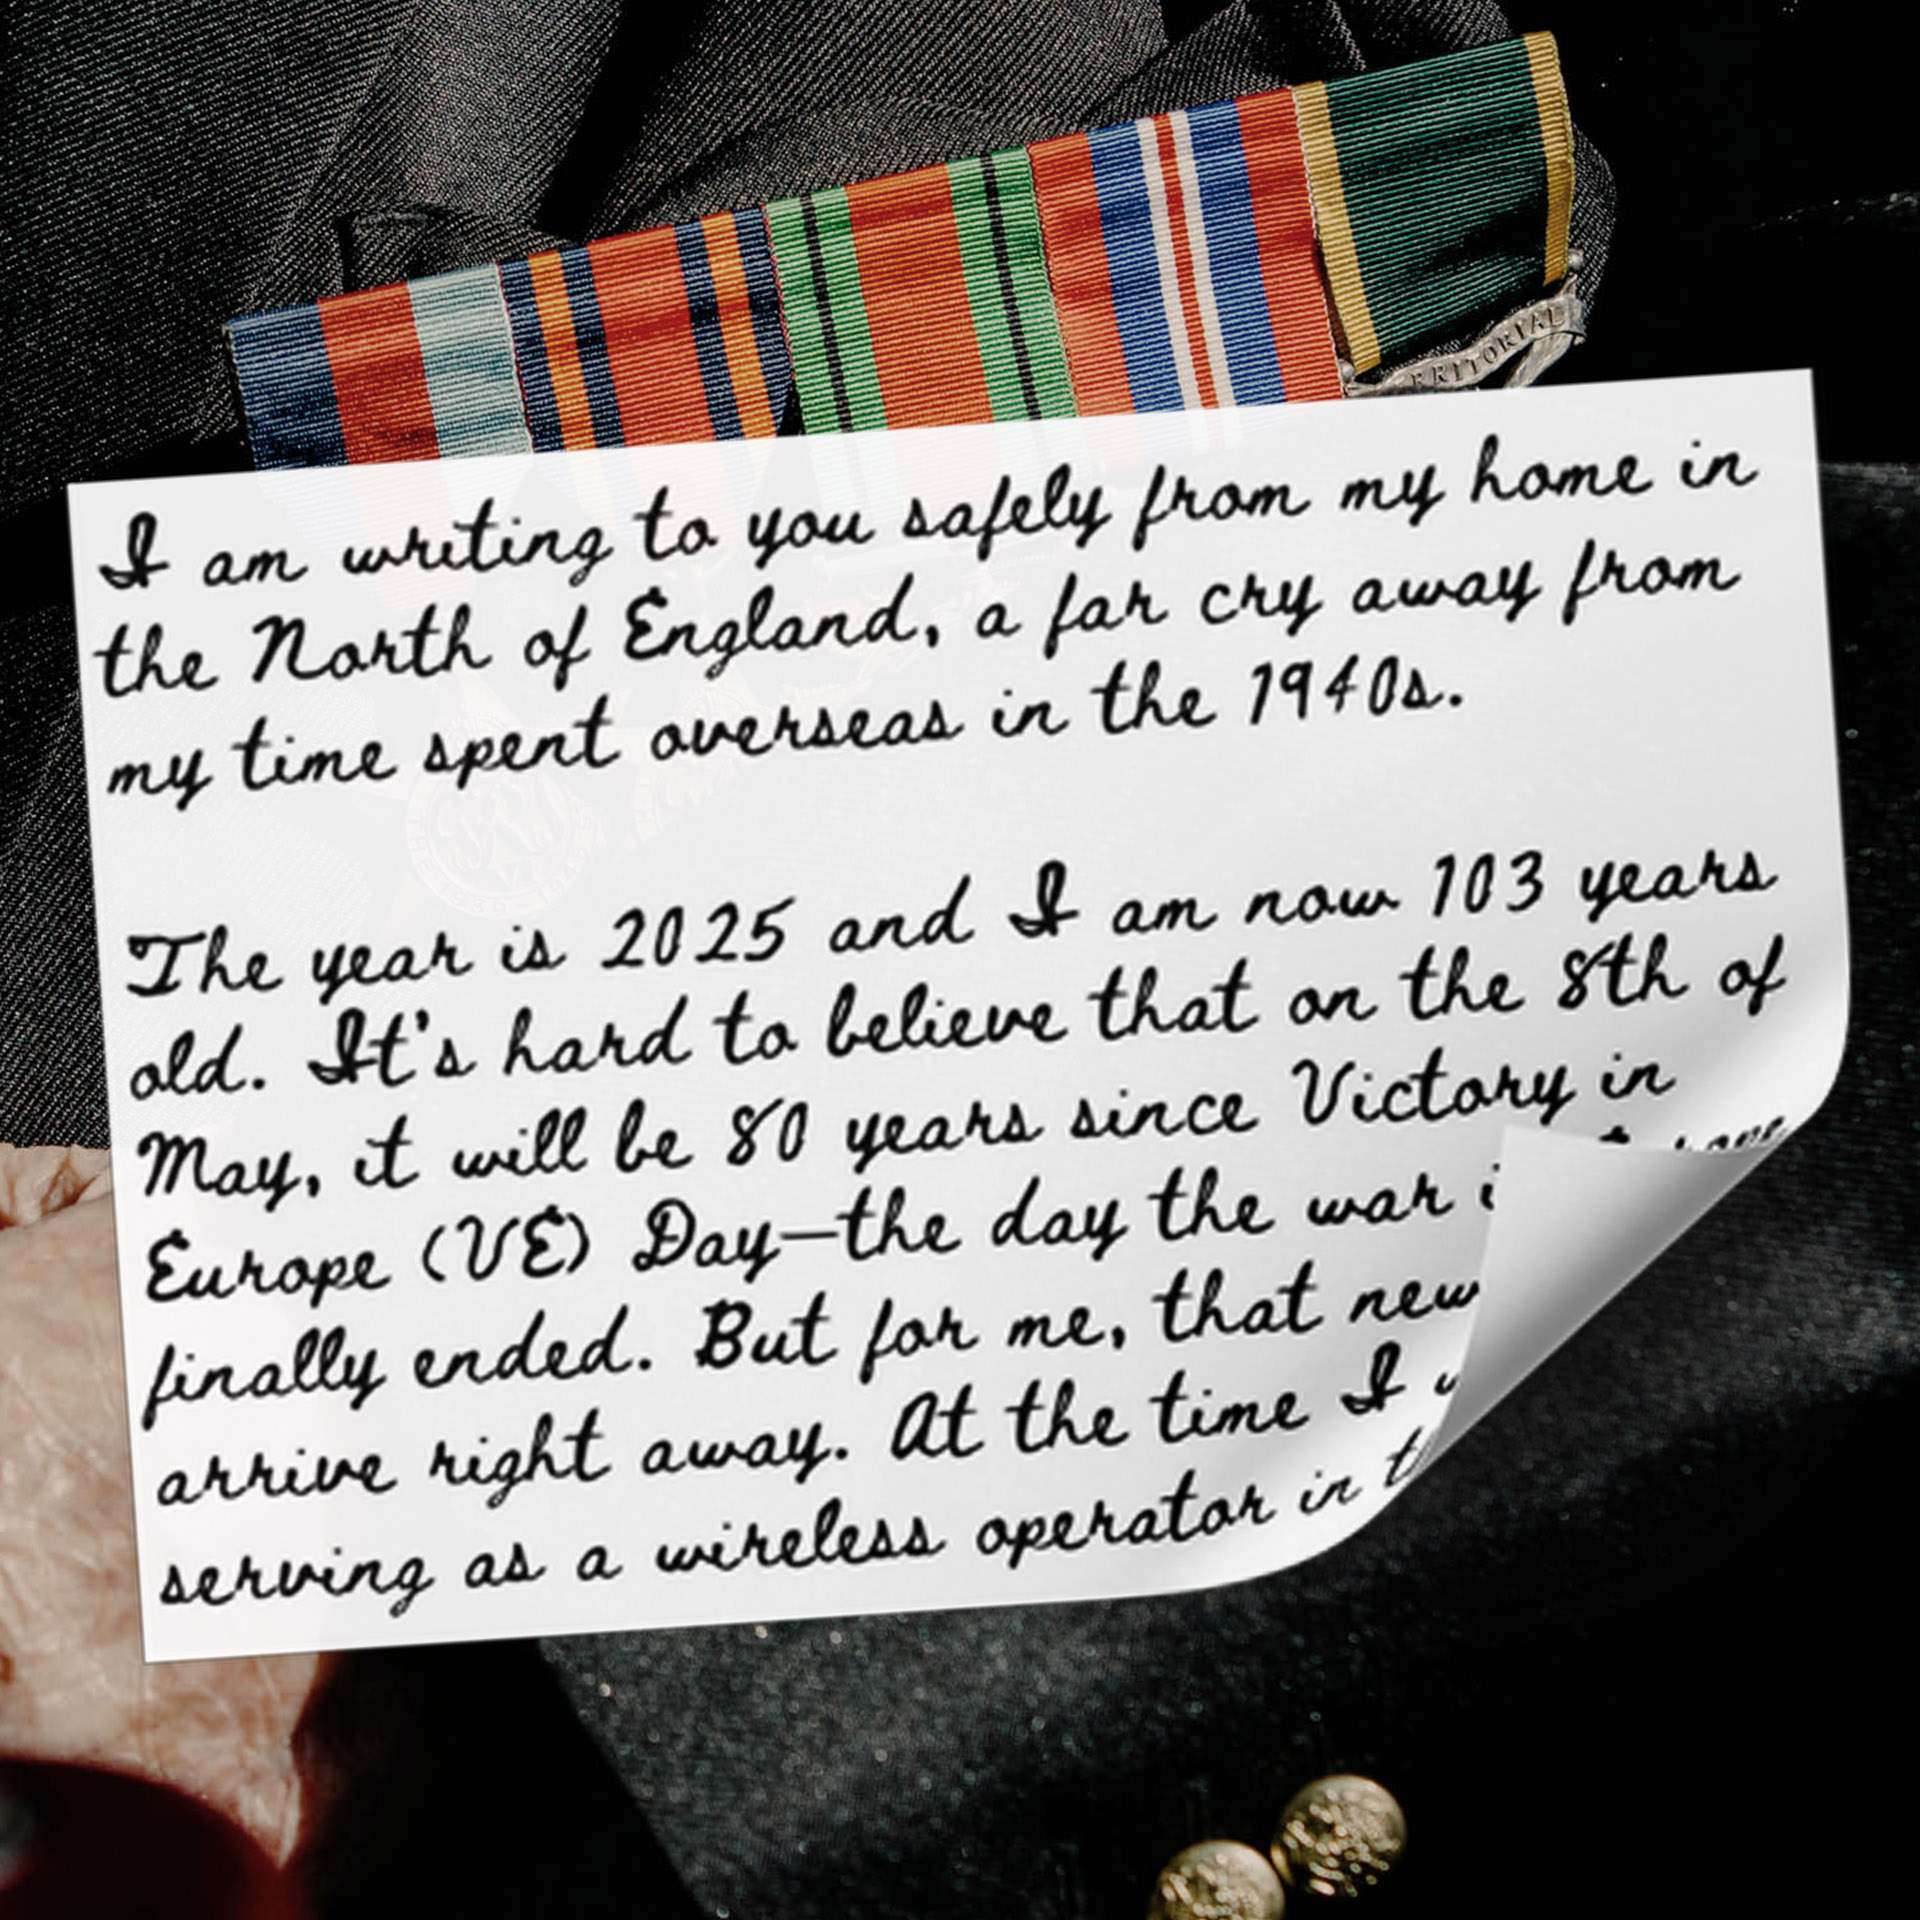 I am writing to you safely from my home in
the North of England, a far cry away from
my time spent overseas in the 1940s.
The year is 2025 and I am now 103 years
old. It's hard to believe that on the 8th of
May, it will be 80 years since Victory in
Europe (VE) Day—the day the war
finally ended. But for me, that
arrive right away. At the time I
serving as a wireless operator in